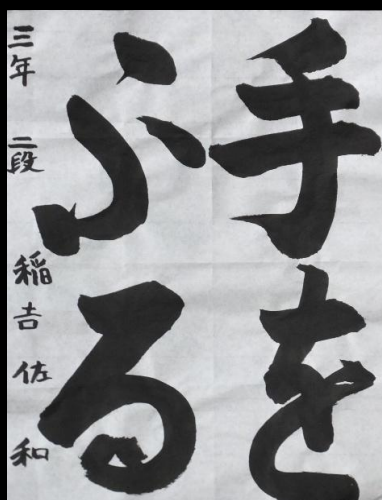 手を
ふる
三年 二段 稲吉佐和